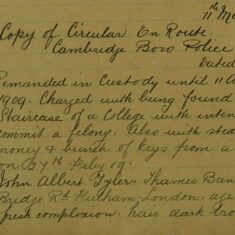 11th M
Copy of Circular "En Route.
Cambridge Boro Police
Dated
Remanded in Custody until 11 A
1909. Charged with being found
Staircase of a College with inten
commit a felony. Also with stea
money & bunch of keys from a
on 27th Feby 09.
John Albert Tyler. Thames Ban
Bridge Rd Fulham, London. age
fresh complexion. hair dark bro